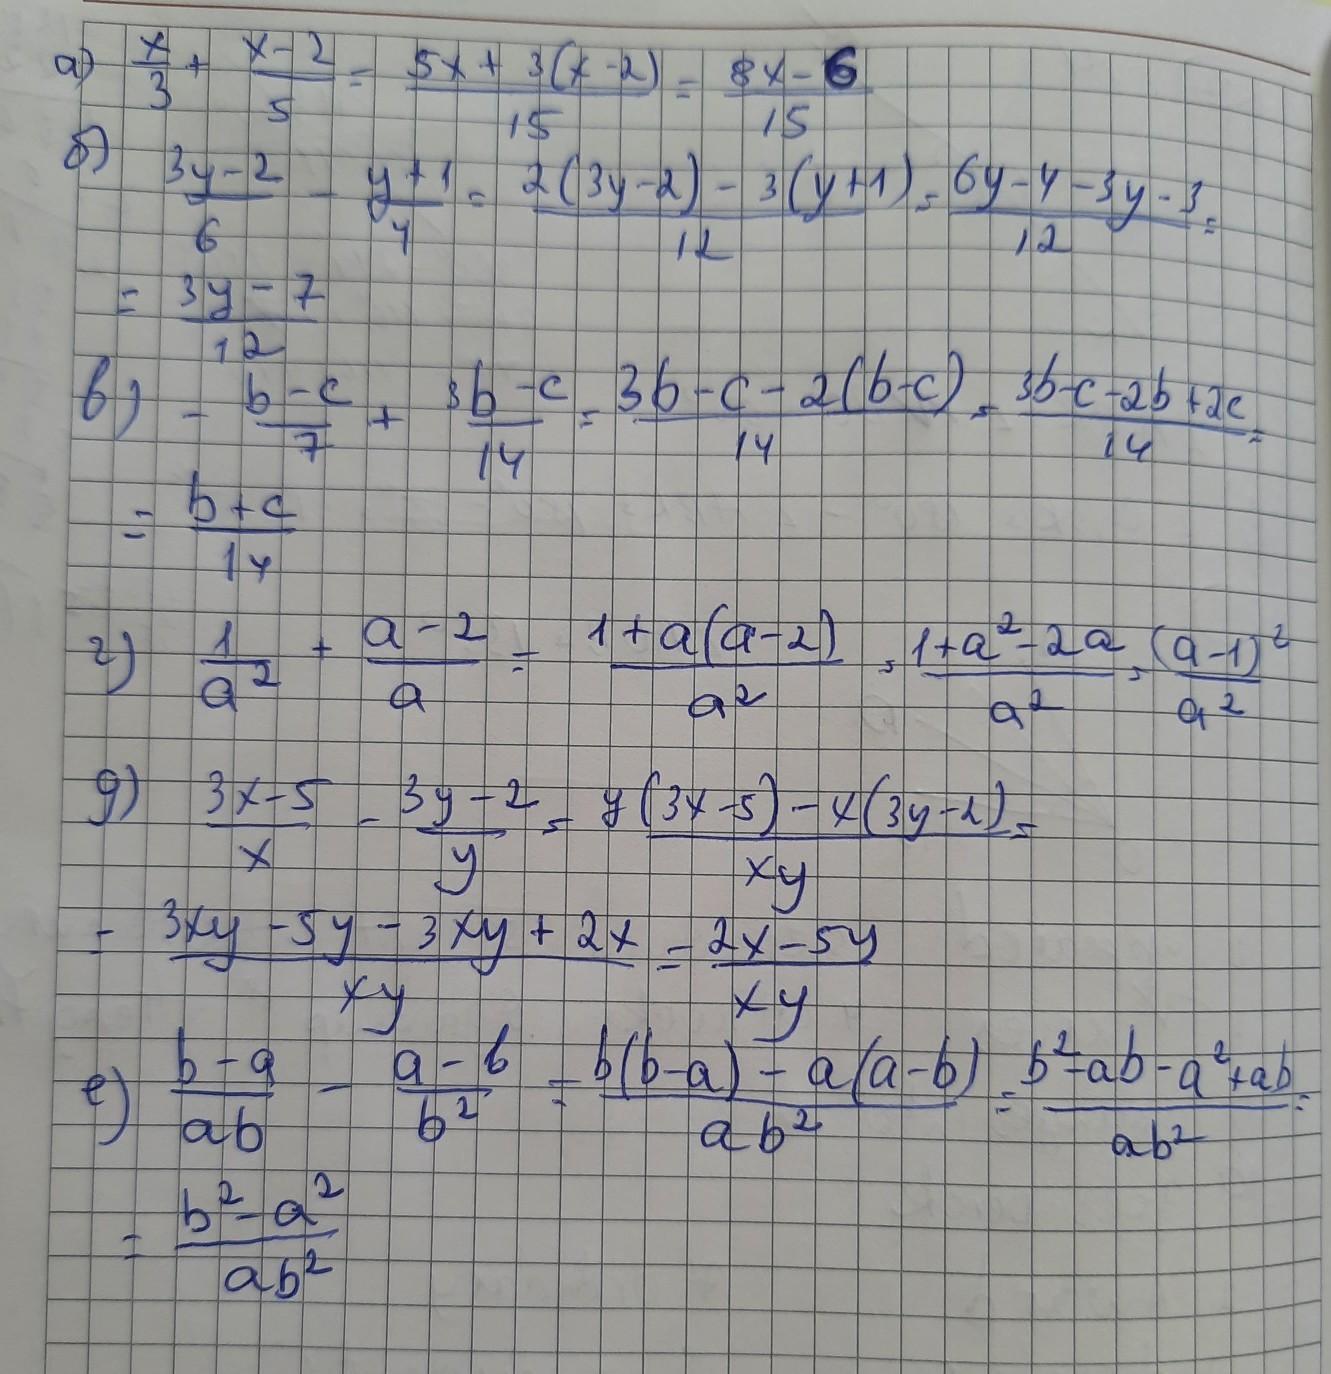 а) x/3 + (x-2)/5 = (5x + 3(x-2))/15 = (8x-6)/15
б) (3y-2)/6 - (y+1)/4 = (2(3y-2) - 3(y+1))/12 = (6y-4-3y-3)/12 =
= (3y-7)/12
в) - (b-c)/7 + (3b-c)/14 = (3b-c-2(b-c))/14 = (3b-c-2b+2c)/14 =
= (b+c)/14
г) 1/a² + (a-2)/a = (1+a(a-2))/a² = (1+a²-2a)/a² = (a-1)²/a²
д) (3x-5)/x - (3y-2)/y = (y(3x-5)-x(3y-2))/xy =
= (3xy-5y-3xy+2x)/xy = (2x-5y)/xy
е) (b-a)/ab - (a-b)/b² = (b(b-a)-a(a-b))/ab² = (b²-ab-a²+ab)/ab² =
= (b²-a²)/ab²